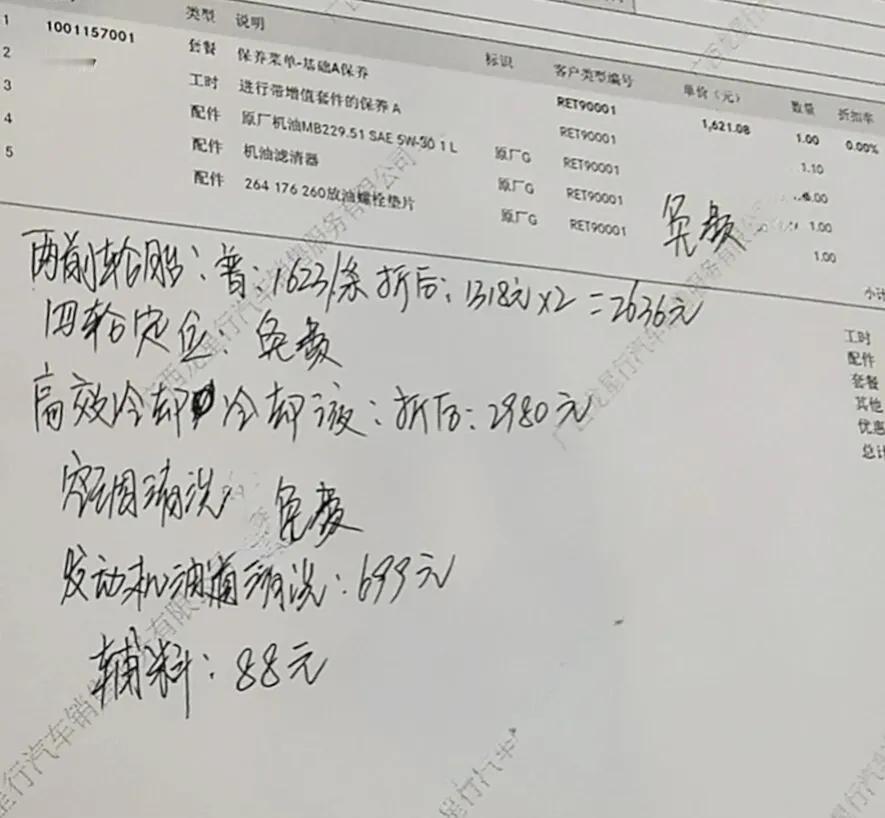 类型 说明 标识 客户类型编号 单价（元） 数量 折扣率
1 1001157001 套餐 保养菜单-基础A保养 RET90001 1,621.08 1.00 0.00%
2 工时 进行带增值套件的保养 A RET90001 1.10
3 配件 原厂机油MB229.51 SAE 5W-30 1 L 原厂G RET90001 .00
4 配件 机油滤清器 原厂G RET90001 1.00
5 配件 264 176 260放油螺栓垫片 原厂G RET90001 1.00
免费
小计
两前轮胎：普：1623/条 折后：1318元×2=2636元
四轮定位：免费
高效冷却 冷却液：折后：2980元
空调清洗 免费
发动机油道清洗：699元
辅料：88元
工时
配件
套餐
其他
优惠
总计
广西龙星行汽车销售服务有限公司